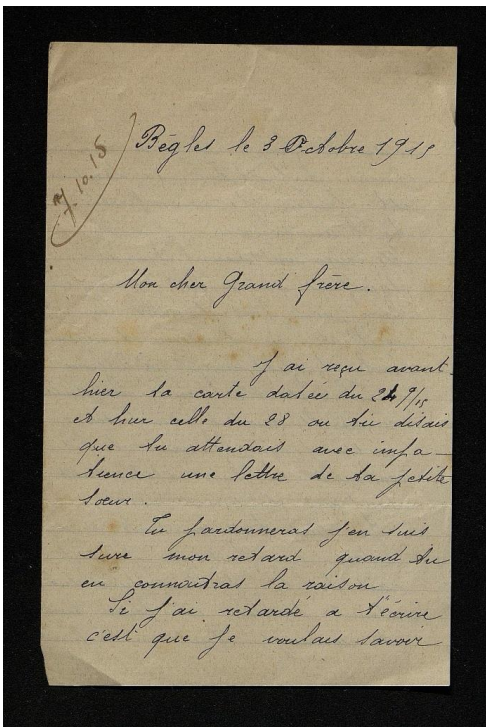 7.10.15
Bègles le 3 Octobre 1915
Mon cher Grand frère.
J'ai reçu avant-
hier ta carte datée du 24 9/15
et hier celle du 28 ou tu disais
que tu attendais avec impa-
tience une lettre de ta petite
soeur.
Tu pardonneras j'en suis
sure mon retard quand tu
en connaitras la raison
Si j'ai retardé a t'écrire
c'est que je voulais savoir